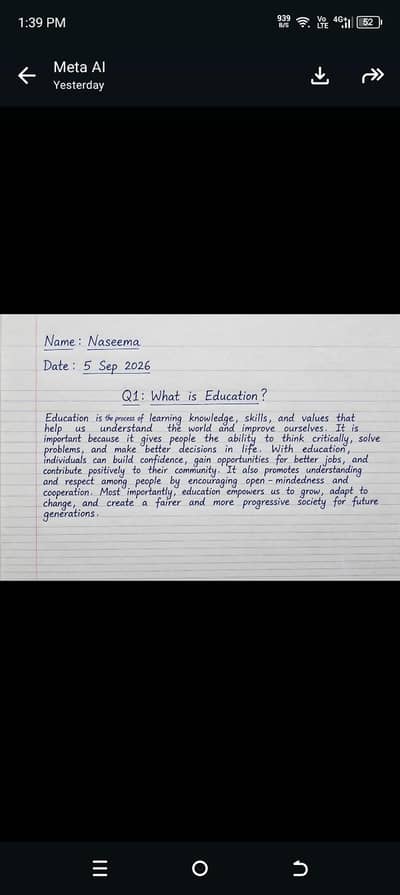 1:39 PM
939
B/S
Vo
LTE
4G+
52
Meta AI
Yesterday
Name: Naseema
Date: 5 Sep 2026
Q1: What is Education?
Education is the process of learning knowledge, skills, and values that
help us understand the world and improve ourselves. It is
important because it gives people the ability to think critically, solve
problems, and make better decisions in life. With education,
individuals can build confidence, gain opportunities for better jobs, and
contribute positively to their community. It also promotes understanding
and respect among people by encouraging open-mindedness and
cooperation. Most importantly, education empowers us to grow, adapt to
change, and create a fairer and more progressive society for future
generations.